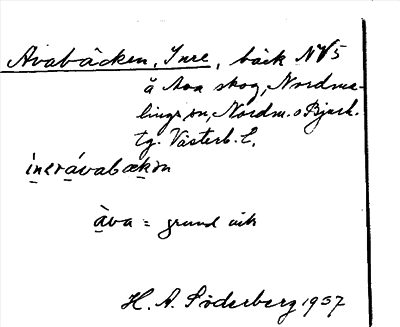 Avabäcken, Inre, bäck NV5
å Ava skog, Nordma-
lings sn, Nordm. o Bjurh.
tg. Västerb. L.
ìnerávabækən
àva = grund vik
H. A. Söderberg 1937